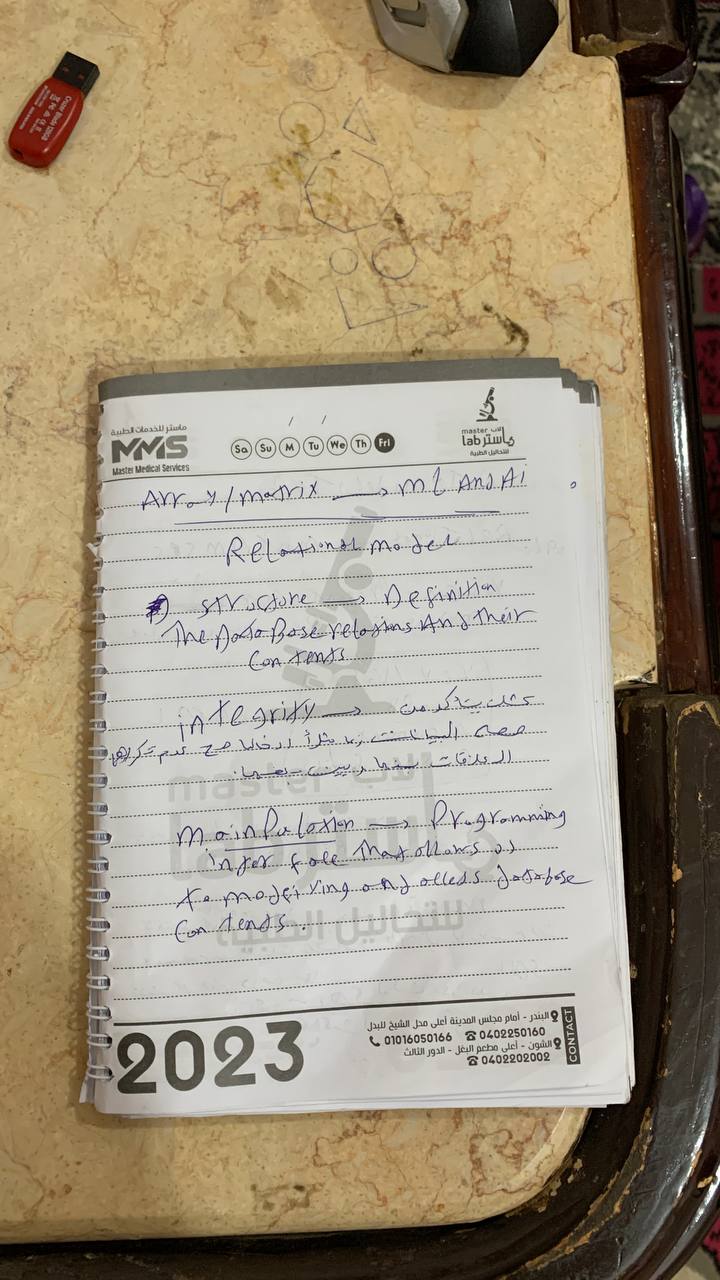 ماستر للخدمات الطبية
MMS
Master Medical Services
/ /
Sa Su M Tu We Th Fri
master لاب
lab ماستر
للتحاليل الطبية
Array/matrix → ML And Ai
Relational model
structure → Definition
The DataBase relations And their
Contents
integrity → علشان يتأكد من
صحة البيانات
العلاقات بينها وبين بعضها.
mainPulation → Programming
interface That allows us
to modifiying and access database
Contents.
master لاب
ماستر
للتحاليل الطبية
2023
البندر - أمام مجلس المدينة أعلى محل الشيخ للبدل
01016050166 0402250160
الشون - أعلى مطعم البغل - الدور الثالث
0402202002
CONTACT
Cruzer Blade 128GB